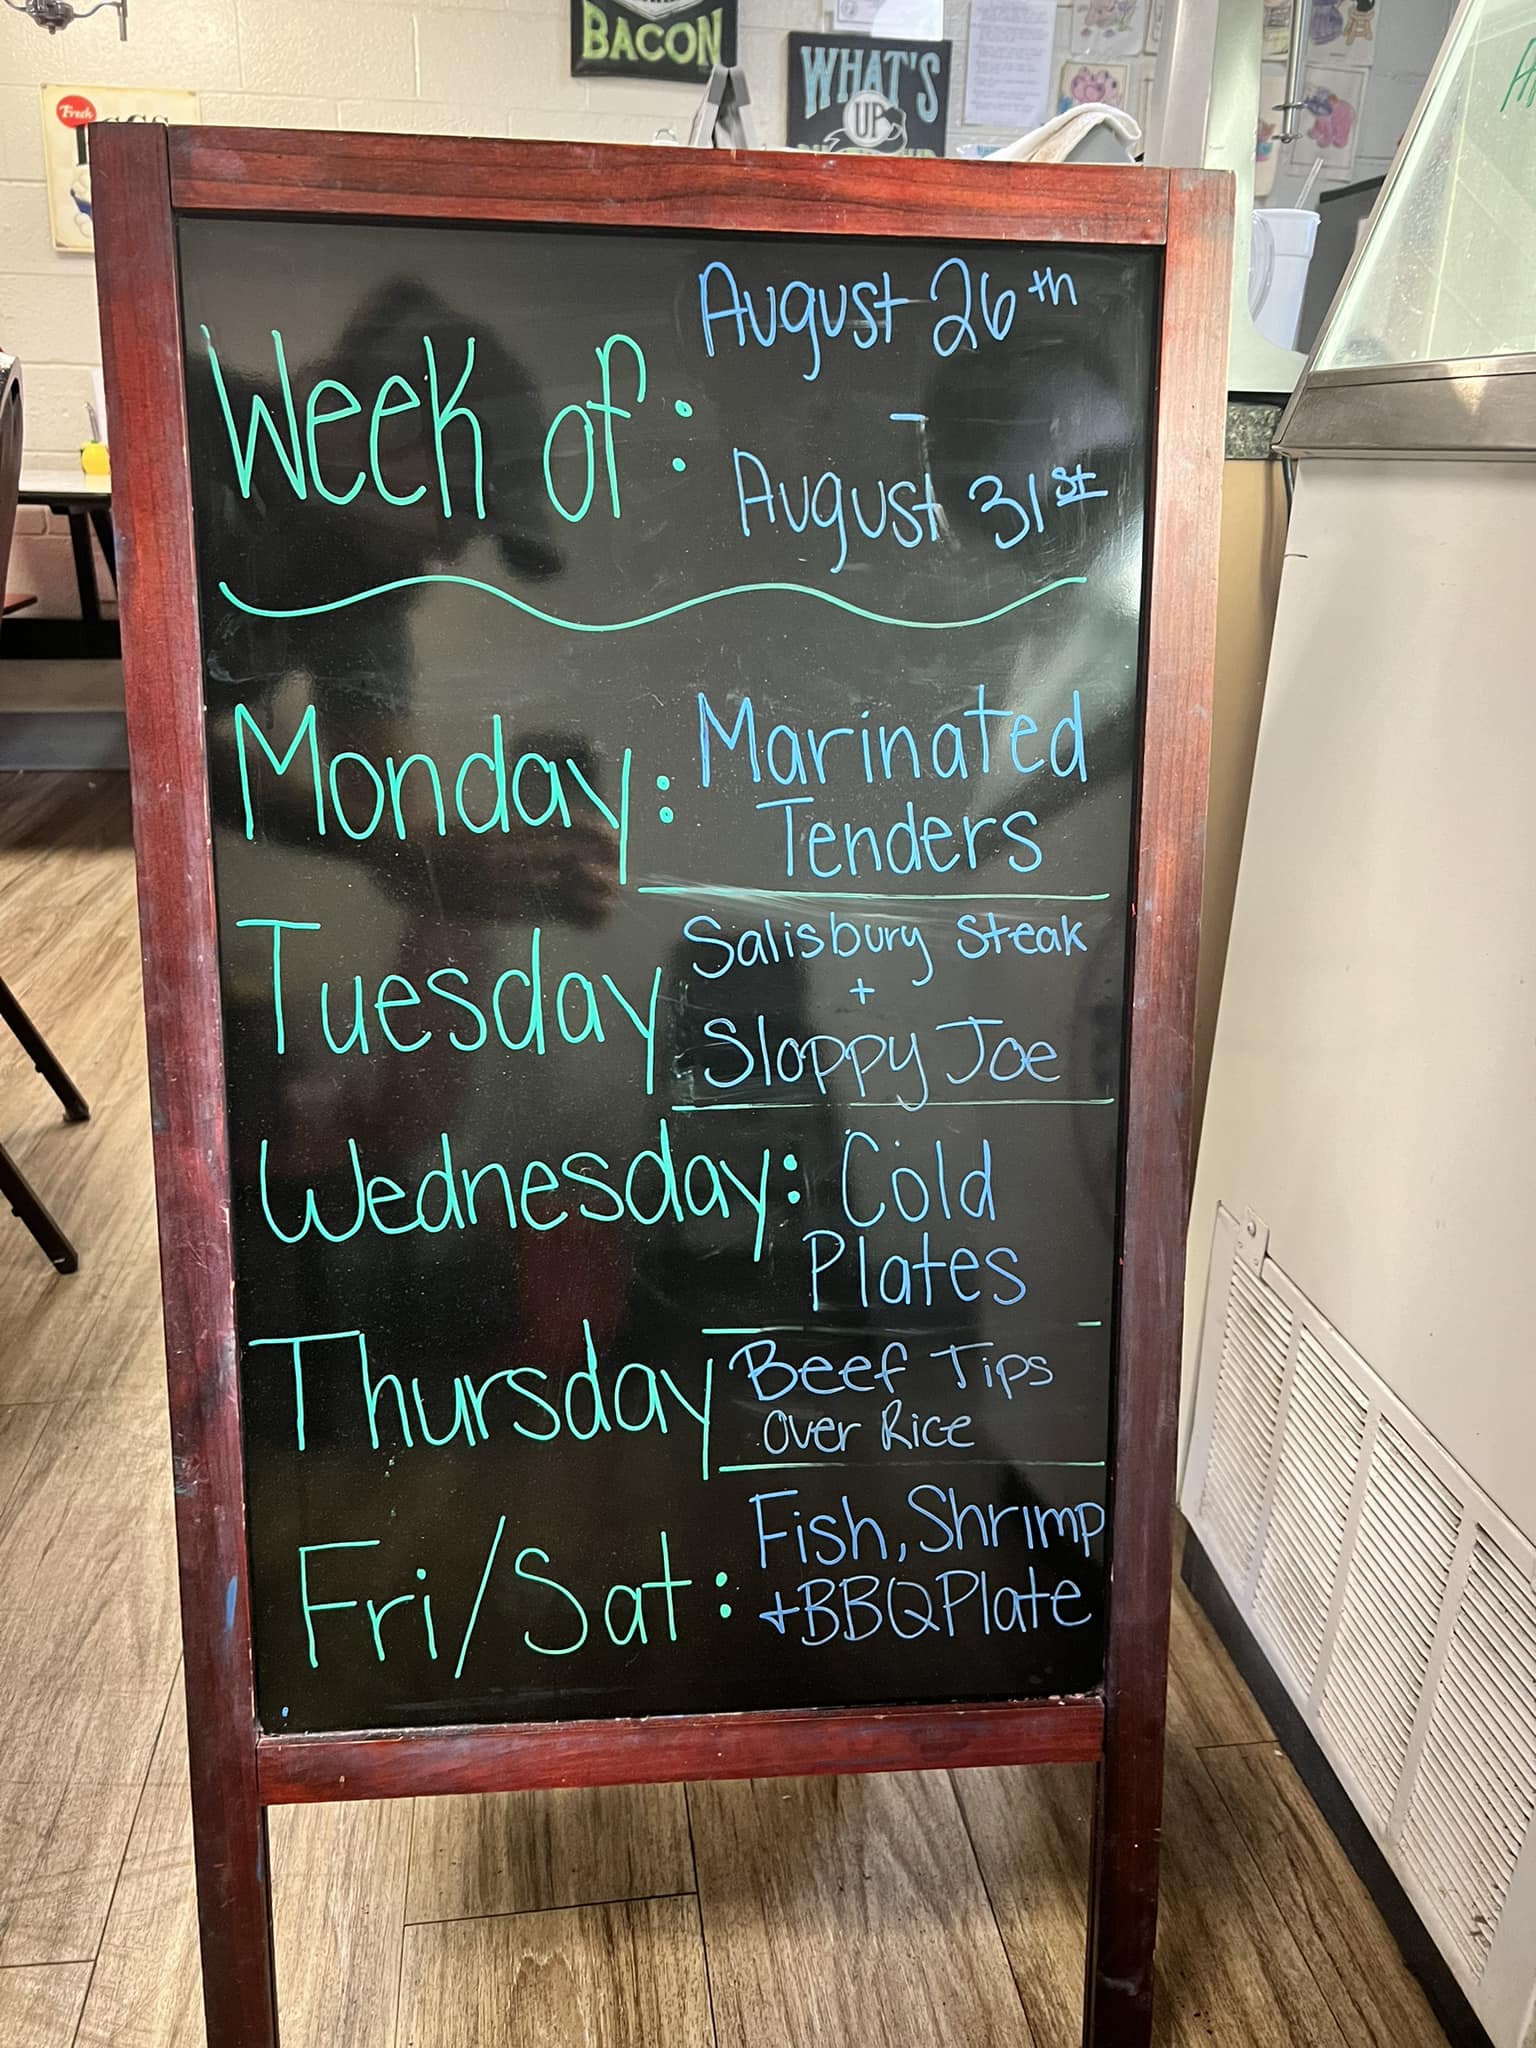 BACON
WHAT'S
UP
Fresh
Week of:
August 26th
-
August 31st
Monday:
Marinated
Tenders
Tuesday
Salisbury Steak
+
Sloppy Joe
Wednesday:
Cold
Plates
Thursday
Beef Tips
over Rice
Fri/Sat:
Fish, Shrimp
+BBQ Plate